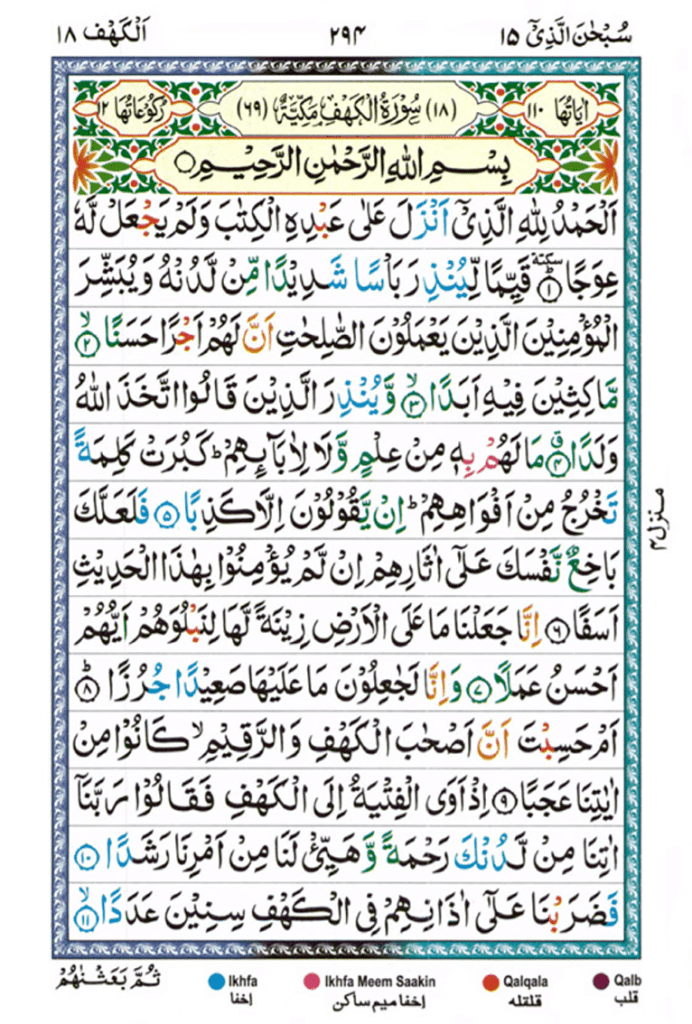 سُبْحٰنَ الَّذِیْۤ ۱۵
۲۹۴
اَلْكَهْف ۱۸
اٰیَاتُهَا ۱۱۰
(۱۸) سُوْرَةُ الْكَهْفِ مَكِّیَّةٌ (۶۹)
رُكُوْعَاتُهَا ۱۲
بِسْمِ اللهِ الرَّحْمٰنِ الرَّحِیْمِ
اَلْحَمْدُ لِلّٰهِ الَّذِیْۤ اَنْزَلَ عَلٰى عَبْدِهِ الْكِتٰبَ وَلَمْ یَجْعَلْ لَّهٗ
عِوَجًا ؄ ۱ قَیِّمًا لِّیُنْذِرَ بَاْسًا شَدِیْدًا مِّنْ لَّدُنْهُ وَیُبَشِّرَ
الْمُؤْمِنِیْنَ الَّذِیْنَ یَعْمَلُوْنَ الصّٰلِحٰتِ اَنَّ لَهُمْ اَجْرًا حَسَنًاۙ ۲
مَّاكِثِیْنَ فِیْهِ اَبَدًاۙ ۳ وَّیُنْذِرَ الَّذِیْنَ قَالُوا اتَّخَذَ اللهُ
وَلَدًا ۴ مَا لَهُمْ بِهٖ مِنْ عِلْمٍ وَّلَا لِاٰبَآىِٕهِمْؕ كَبُرَتْ كَلِمَةً
تَخْرُجُ مِنْ اَفْوَاهِهِمْؕ اِنْ یَّقُوْلُوْنَ اِلَّا كَذِبًا ۵ فَلَعَلَّكَ
بَاخِعٌ نَّفْسَكَ عَلٰۤى اٰثَارِهِمْ اِنْ لَّمْ یُؤْمِنُوْا بِهٰذَا الْحَدِیْثِ
اَسَفًا ۶ اِنَّا جَعَلْنَا مَا عَلَى الْاَرْضِ زِیْنَةً لَّهَا لِنَبْلُوَهُمْ اَیُّهُمْ
اَحْسَنُ عَمَلًا ۷ وَاِنَّا لَجٰعِلُوْنَ مَا عَلَیْهَا صَعِیْدًا جُرُزًاؕ ۸
اَمْ حَسِبْتَ اَنَّ اَصْحٰبَ الْكَهْفِ وَالرَّقِیْمِۙ كَانُوْا مِنْ
اٰیٰتِنَا عَجَبًا ۹ اِذْ اَوَى الْفِتْیَةُ اِلَى الْكَهْفِ فَقَالُوْا رَبَّنَاۤ
اٰتِنَا مِنْ لَّدُنْكَ رَحْمَةً وَّهَیِّئْ لَنَا مِنْ اَمْرِنَا رَشَدًا ۱۰
فَضَرَبْنَا عَلٰۤى اٰذَانِهِمْ فِی الْكَهْفِ سِنِیْنَ عَدَدًاۙ ۱۱
منزل ۴
ثُمَّ بَعَثْنٰهُمْ
Ikhfa
إخفا
Ikhfa Meem Saakin
إخفا میم ساكن
Qalqala
قلقله
Qalb
قلب